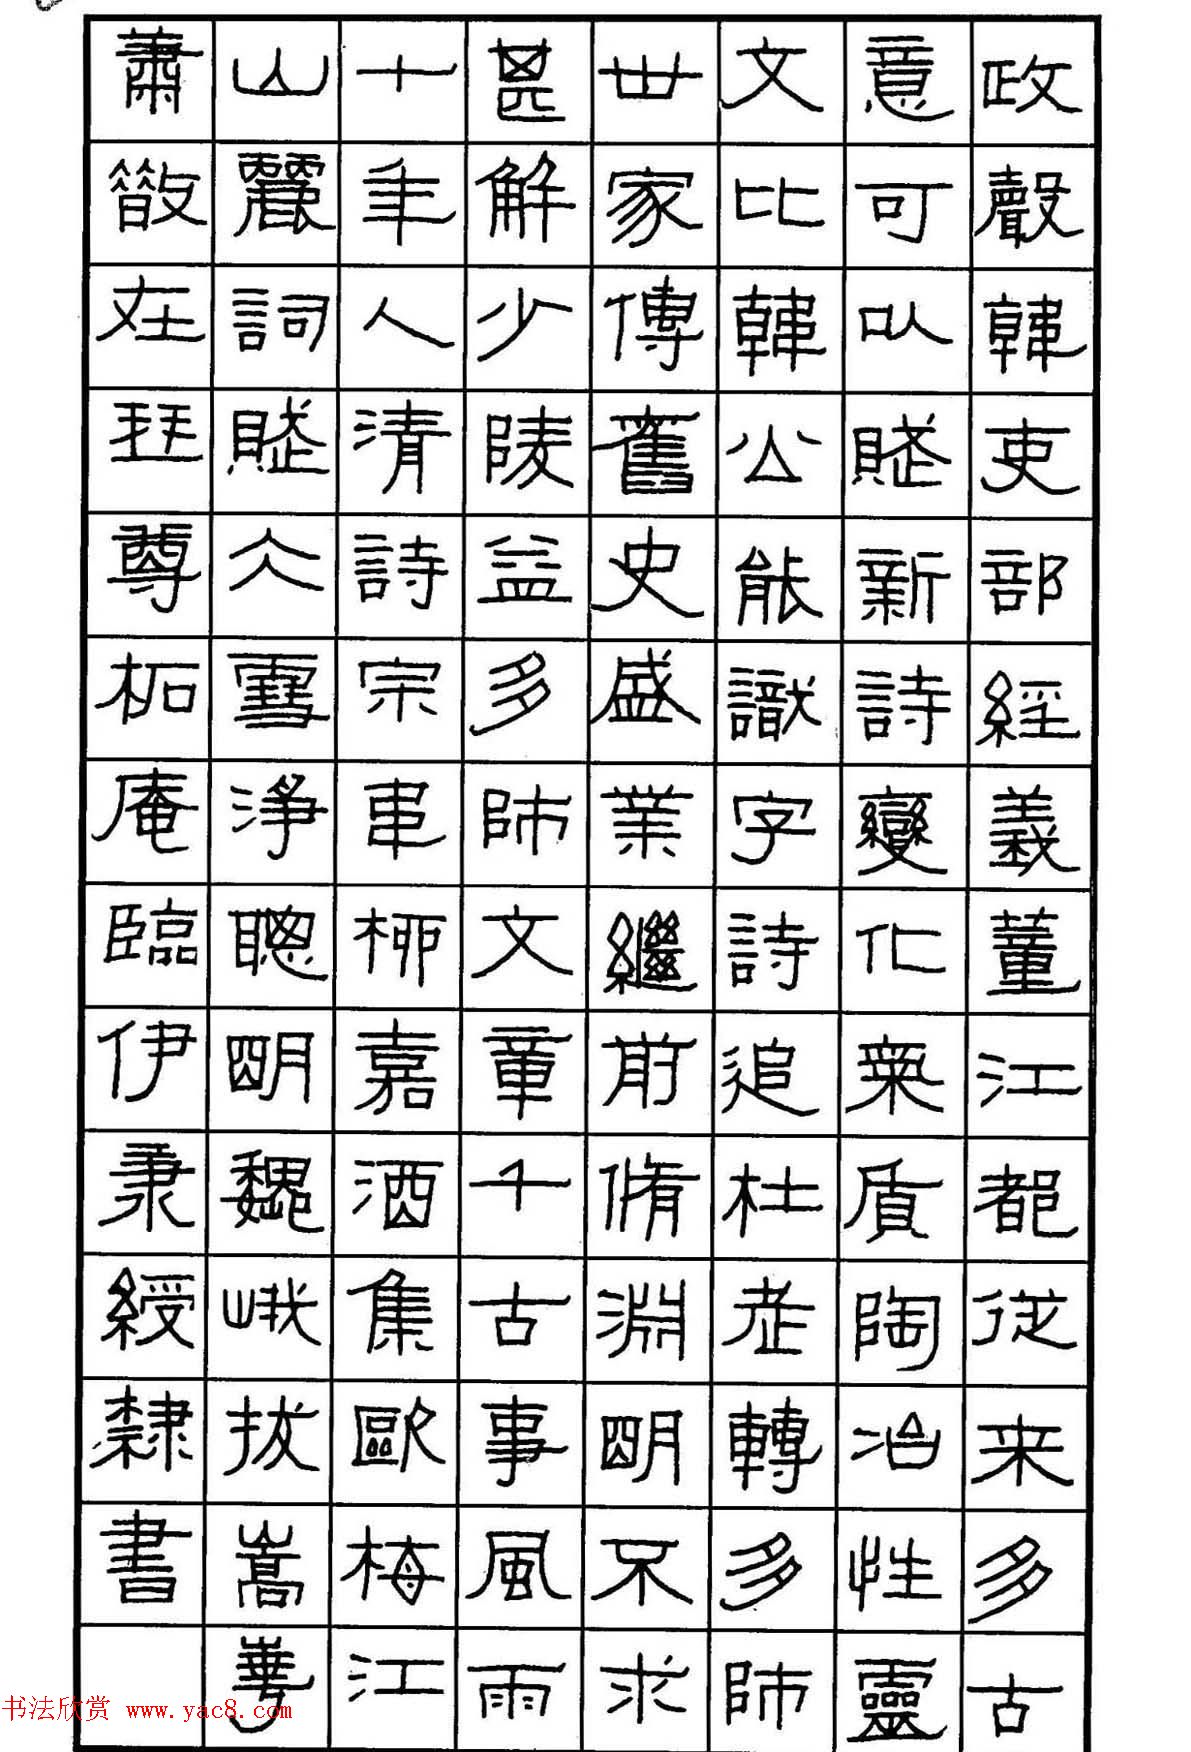 政聲韓吏部經義董江都從来多古
意可以賦新詩變化氣質陶冶性靈
文比韓公能識字詩追杜老轉多師
世家傳舊史盛業繼前脩淵明不求
甚解少陵益多師文章千古事風雨
十年人清詩宗韋柳嘉酒集歐梅江
山麗詞賦仌雪淨聰明魏峨拔嵩華
蕭散在琴尊柘庵臨伊秉綬隸書
书法欣赏 www.yac8.com